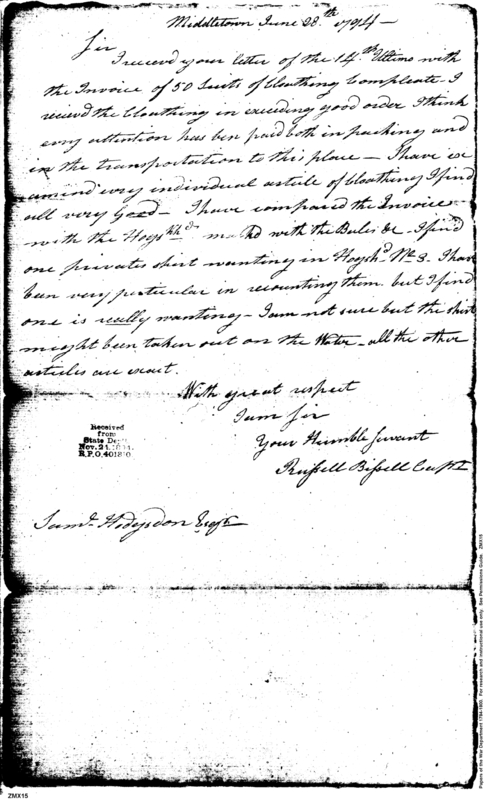 Middletown June 28th 1794 —
Sir
I received your letter of the 14th Ultimo with
the Invoice of 50 Suits of Cloathing Compleate - I
recievd the Cloathing in exceeding good order I think
evry attention has ben paid both in packing and
in the transportation to this place — I have ex
amiend evry individual article of Cloathing I find
all very Good — I have compared the Invoice
with the Hogshhds markd with the Bales &c - I find
one privates shirt wanting in Hogshd No 3. I have
been very perticular in recounting them but I find
one is really wanting - I am not sure but the shirt
might been taken out on the Water - all the other
articles are exact.
With great respect
I am Sir
Your Humble Servant
Russell Bissell Capt
Saml. Hodgsdon Esqr
Received
from
State Dept.
Nov. 24,
R.P.O. 401810
ZMX15
Papers of the War Department 1784-1800. For research and instructional use only. See Permissions Guide. ZMX15